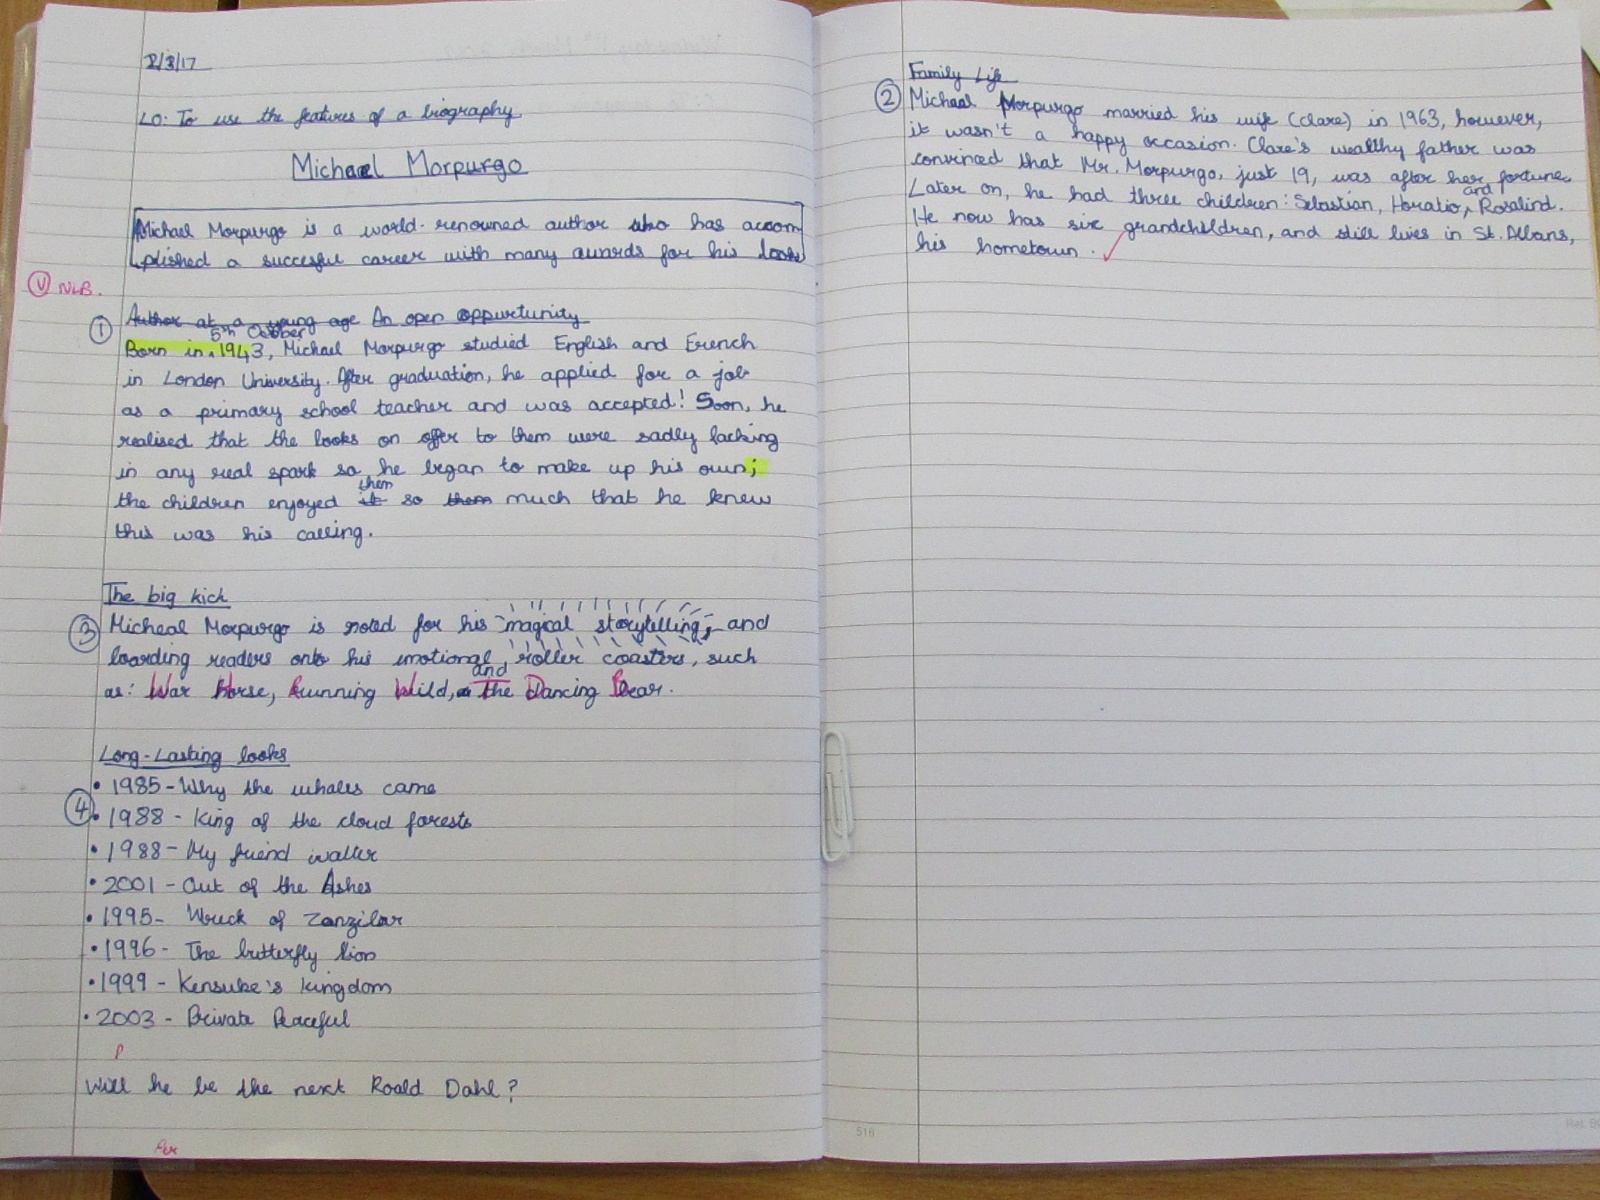 2/3/17
LO: To use the features of a biography
Michael Morpurgo
Michael Morpurgo is a world-renowned author who has accom
plished a succesful career with many awards for his books
V NLB.
① Author at a young age An open oppurtunity
5th October
Born in 1943, Michael Morpurgo studied English and French
in London University. After graduation, he applied for a job
as a primary school teacher and was accepted! Soon, he
realised that the books on offer to them were sadly lacking
in any real spark so, he began to make up his own;
them
the children enjoyed it so them much that he knew
this was his calling.
The big kick
③ Micheal Morpurgo is noted for his magical storytelling, and
boarding readers onto his emotional, roller coasters, such
and
as: War Horse, Running Wild, the Dancing Bear.
Long-Lasting books
• 1985 - Why the whales came
④ • 1988 - King of the cloud forests
• 1988 - My friend walter
• 2001 - Out of the Ashes
• 1995 - Wreck of Zanzibar
• 1996 - The butterfly lion
• 1999 - Kensuke's kingdom
• 2003 - Private Peaceful
P
Will he be the next Roald Dahl?
Family Life
② Michael Morpurgo married his wife (Clare) in 1963, however,
it wasn't a happy occasion. Clare's wealthy father was
convinced that Mr. Morpurgo, just 19, was after her fortune.
and
Later on, he had three children: Sebastian, Horatio, Rosalind.
He now has six grandchildren, and still lives in St. Albans,
his hometown.
516